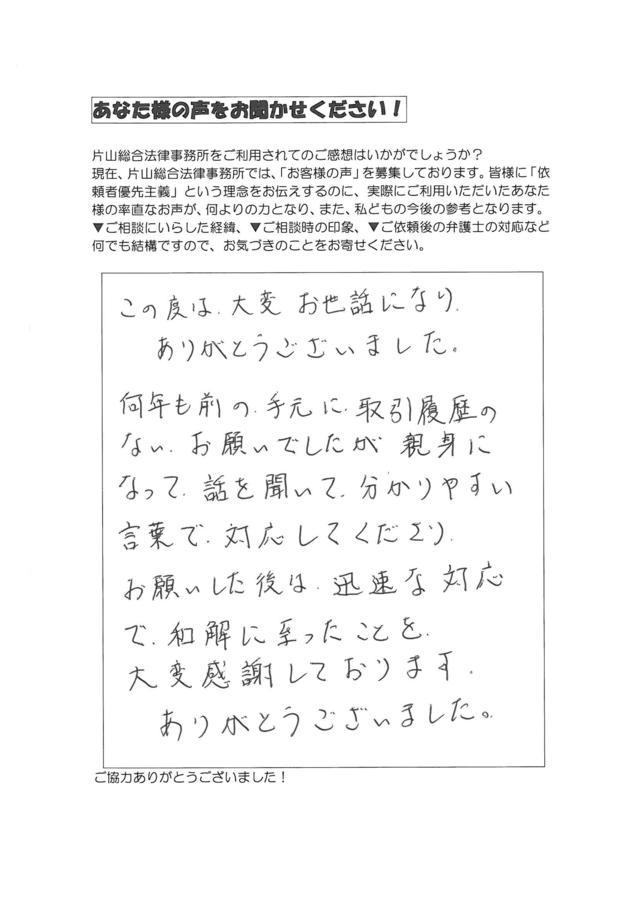 あなた様の声をお聞かせください！
片山総合法律事務所をご利用されてのご感想はいかがでしょうか？
現在、片山総合法律事務所では、「お客様の声」を募集しております。皆様に「依
頼者優先主義」という理念をお伝えするのに、実際にご利用いただいたあなた
様の率直なお声が、何よりの力となり、また、私どもの今後の参考となります。
▼ご相談にいらした経緯、▼ご相談時の印象、▼ご依頼後の弁護士の対応など
何でも結構ですので、お気づきのことをお寄せください。
この度は、大変 お世話になり、
ありがとうございました。
何年も前の、手元に、取引履歴の
ない、お願いでしたが 親身に
なって、話を聞いて、分かりやすい
言葉で、対応してくださり、
お願いした後は、迅速な対応
で、和解に至ったことを、
大変感謝しております。
ありがとうございました。
ご協力ありがとうございました！